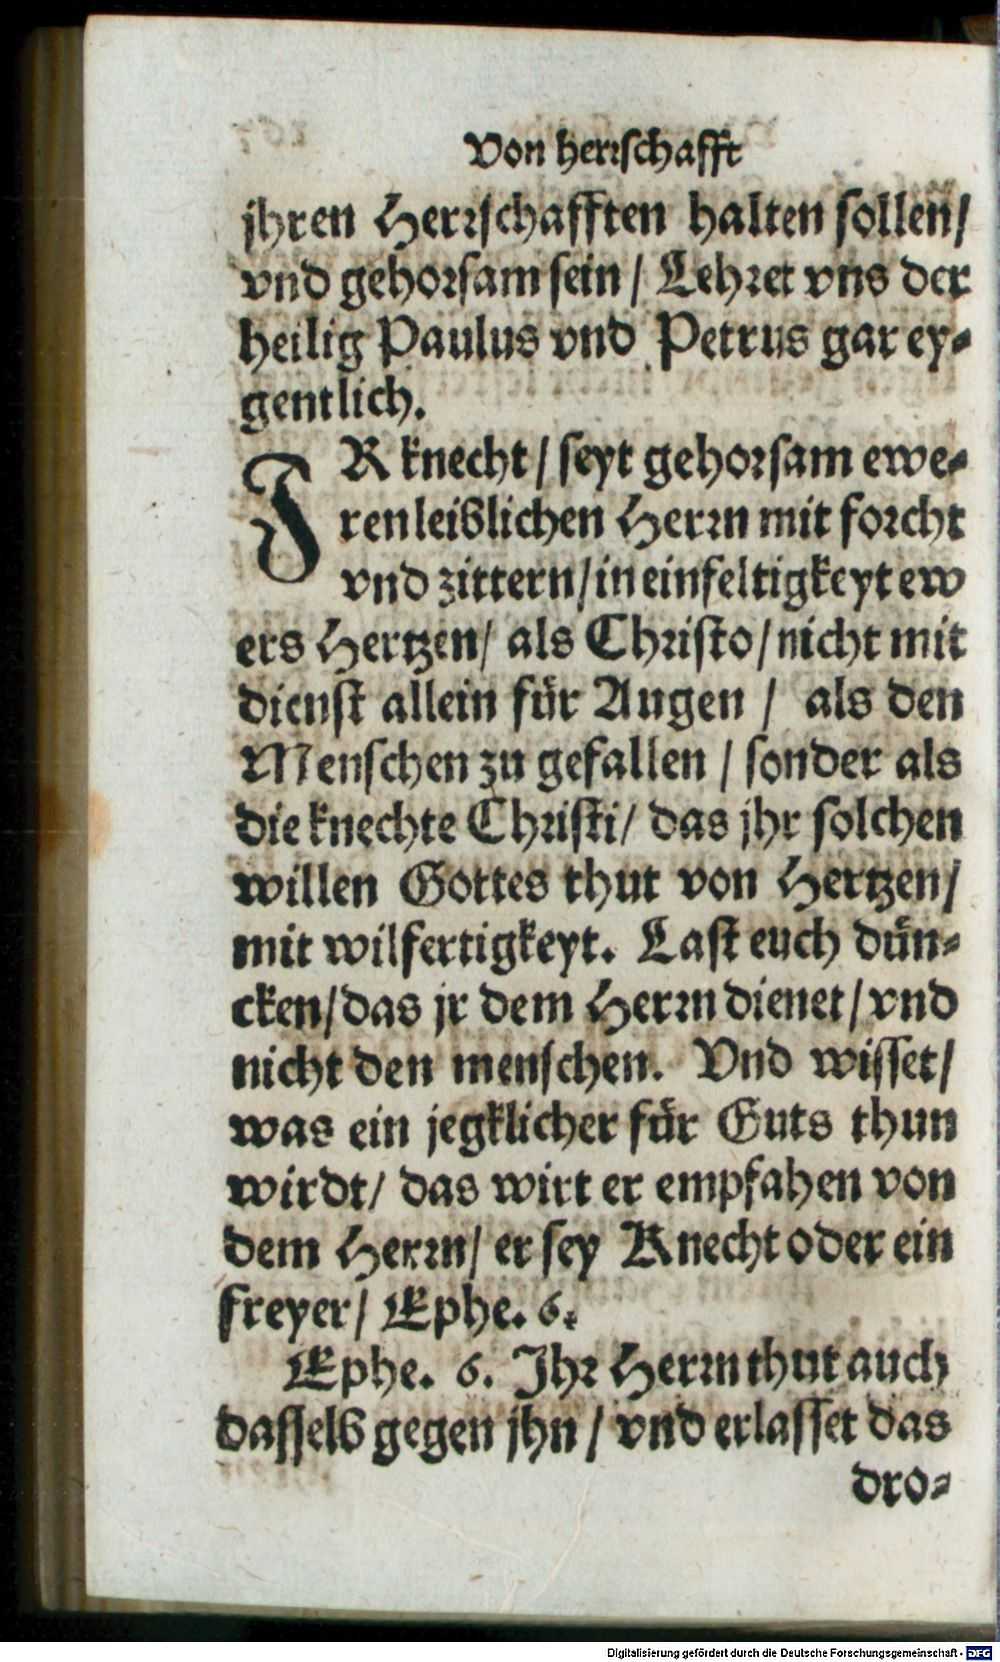 Von herrschafft
jhren Herrschafften halten sollen/
vnd gehorsam sein / Lehret vns der
heilig Paulus vnd Petrus gar ey-
gentlich.
IR knecht / seyt gehorsam ewe-
ren leiblichen Herrn mit forcht
vnd zittern/ in einfeltigkeyt ew
ers Hertzen/ als Christo/ nicht mit
dienst allein für Augen / als den
Menschen zu gefallen / sonder als
die knechte Christi/ das jhr solchen
willen Gottes thut von Hertzen/
mit wilfertigkeyt. Last euch dün-
cken/ das jr dem Herrn dienet/ vnd
nicht den menschen. Vnd wisset/
was ein jegklicher für Guts thun
wirdt/ das wirt er empfahen von
dem Herrn/ er sey Knecht oder ein
freyer/ Ephe. 6.
Ephe. 6. Jhr Herrn thut auch
dasselb gegen jhn / vnd erlasset das
dro-
Digitalisierung gefördert durch die Deutsche Forschungsgemeinschaft - DFG